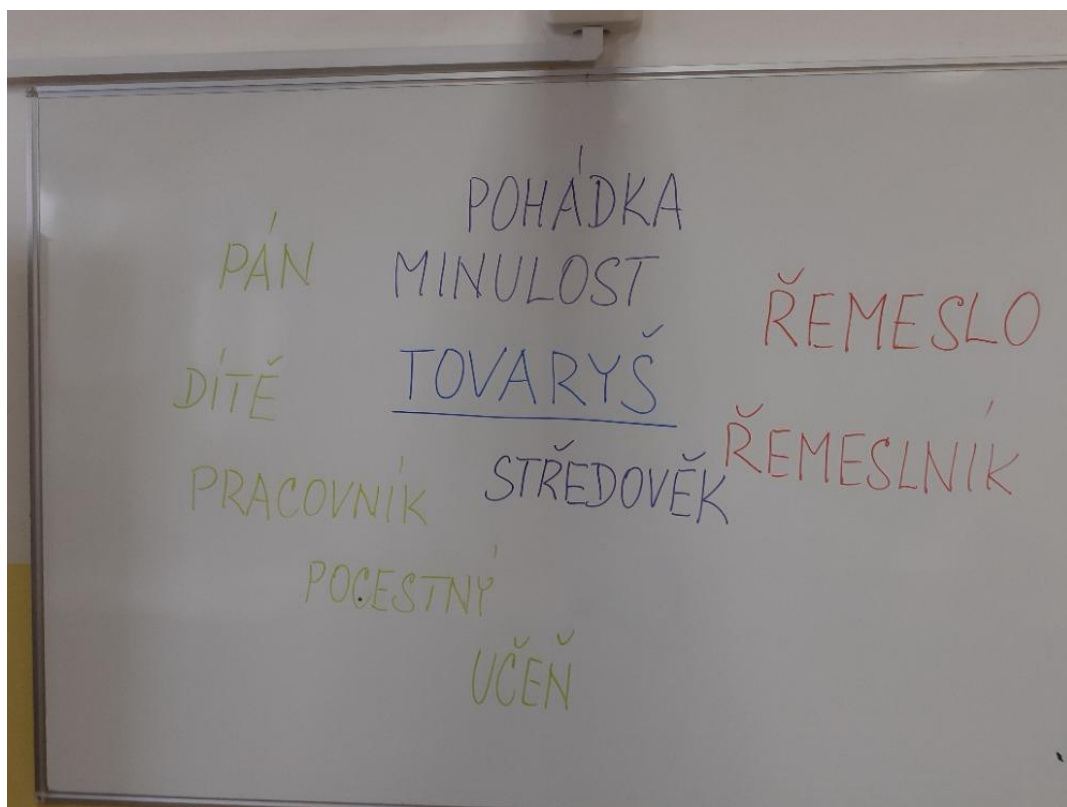 POHÁDKA
PÁN
MINULOST
ŘEMESLO
DÍTĚ
TOVARYŠ
ŘEMESLNÍK
PRACOVNÍK
STŘEDOVĚK
POCESTNÝ
UČEŇ